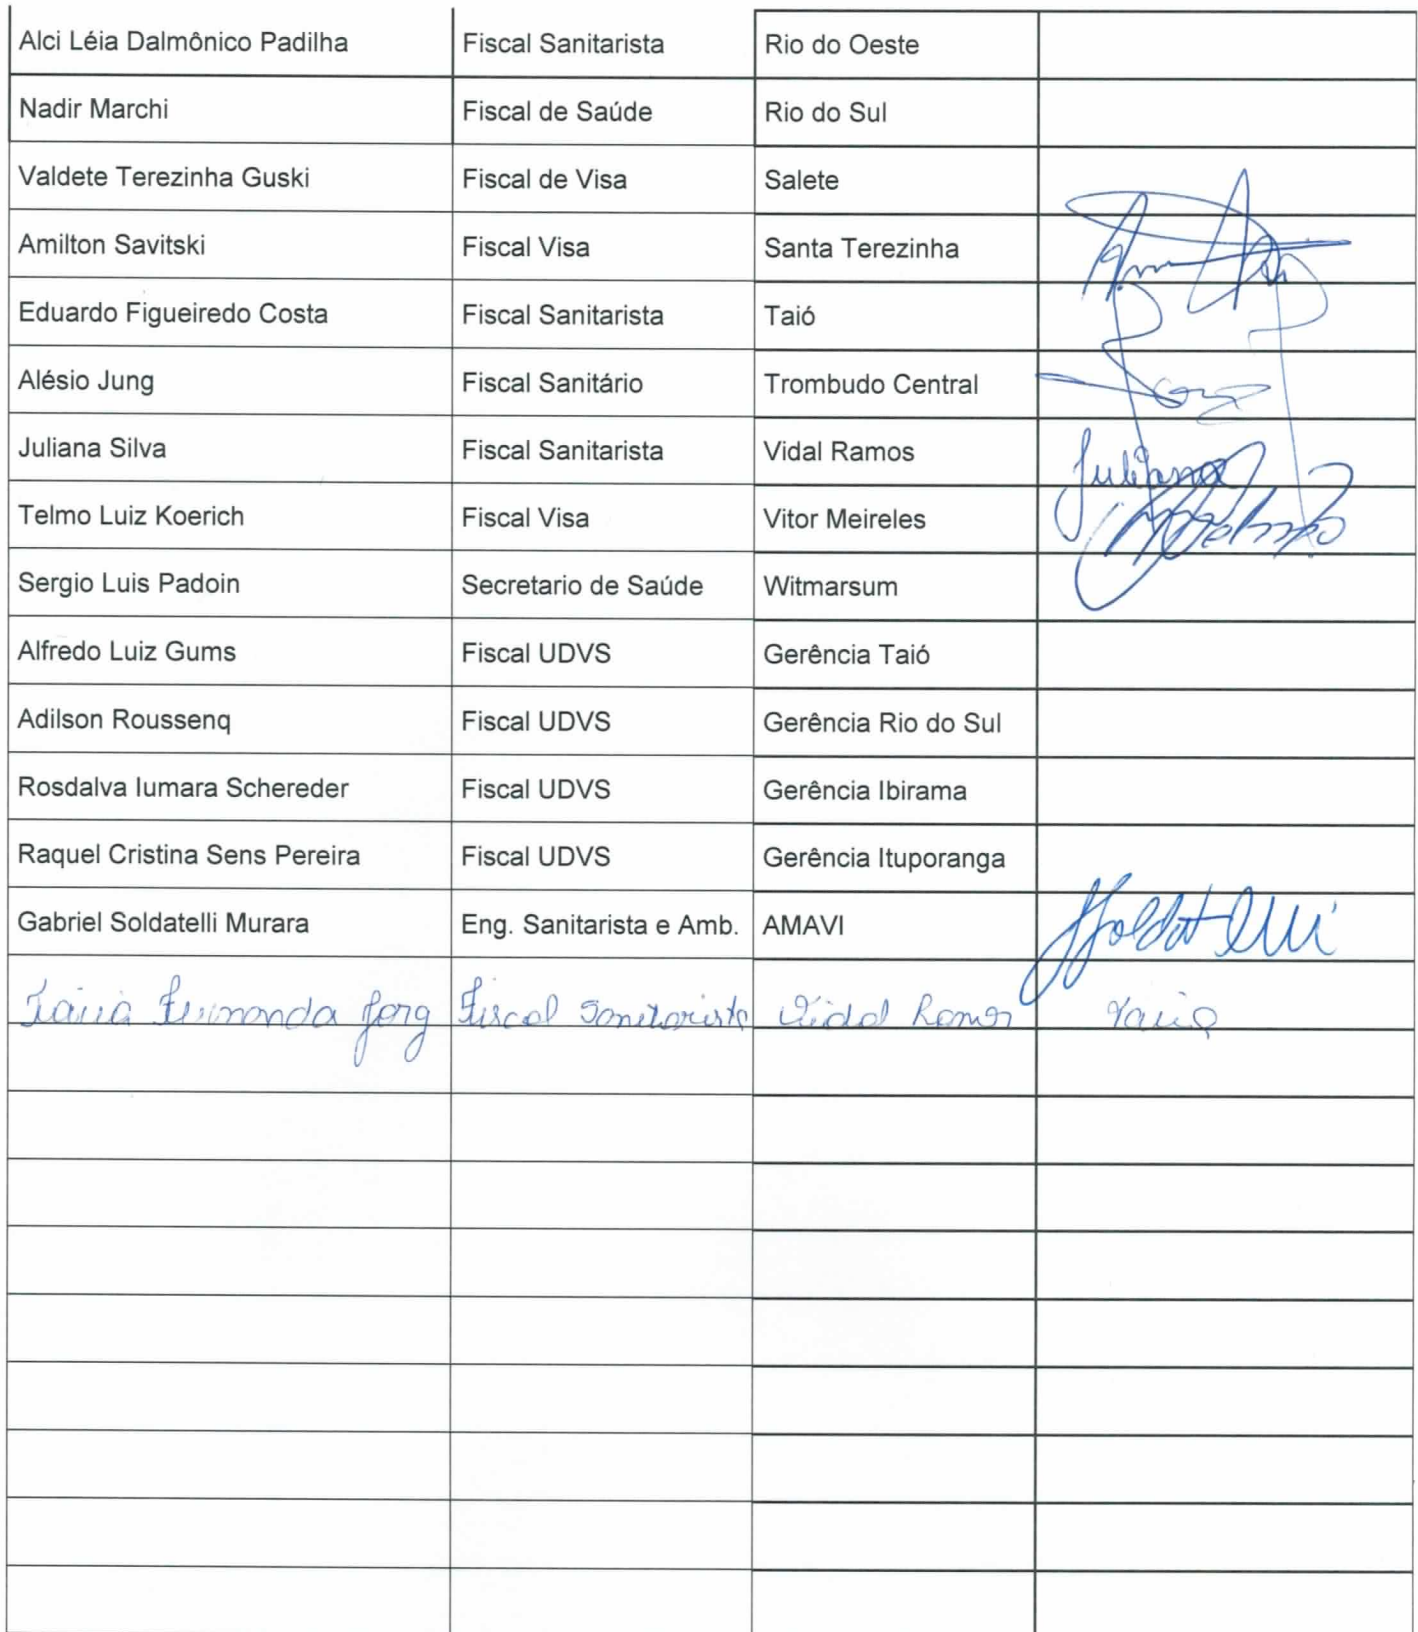 Alci Léia Dalmônico Padilha Fiscal Sanitarista Rio do Oeste
Nadir Marchi Fiscal de Saúde Rio do Sul
Valdete Terezinha Guski Fiscal de Visa Salete
Amilton Savitski Fiscal Visa Santa Terezinha
Eduardo Figueiredo Costa Fiscal Sanitarista Taió
Alésio Jung Fiscal Sanitário Trombudo Central
Juliana Silva Fiscal Sanitarista Vidal Ramos Juliana
Telmo Luiz Koerich Fiscal Visa Vitor Meireles
Sergio Luis Padoin Secretario de Saúde Witmarsum
Alfredo Luiz Gums Fiscal UDVS Gerência Taió
Adilson Roussenq Fiscal UDVS Gerência Rio do Sul
Rosdalva Iumara Schereder Fiscal UDVS Gerência Ibirama
Raquel Cristina Sens Pereira Fiscal UDVS Gerência Ituporanga
Gabriel Soldatelli Murara Eng. Sanitarista e Amb. AMAVI Soldatelli
Fernanda Jorg Fiscal Sanitarista Vidal Ramos